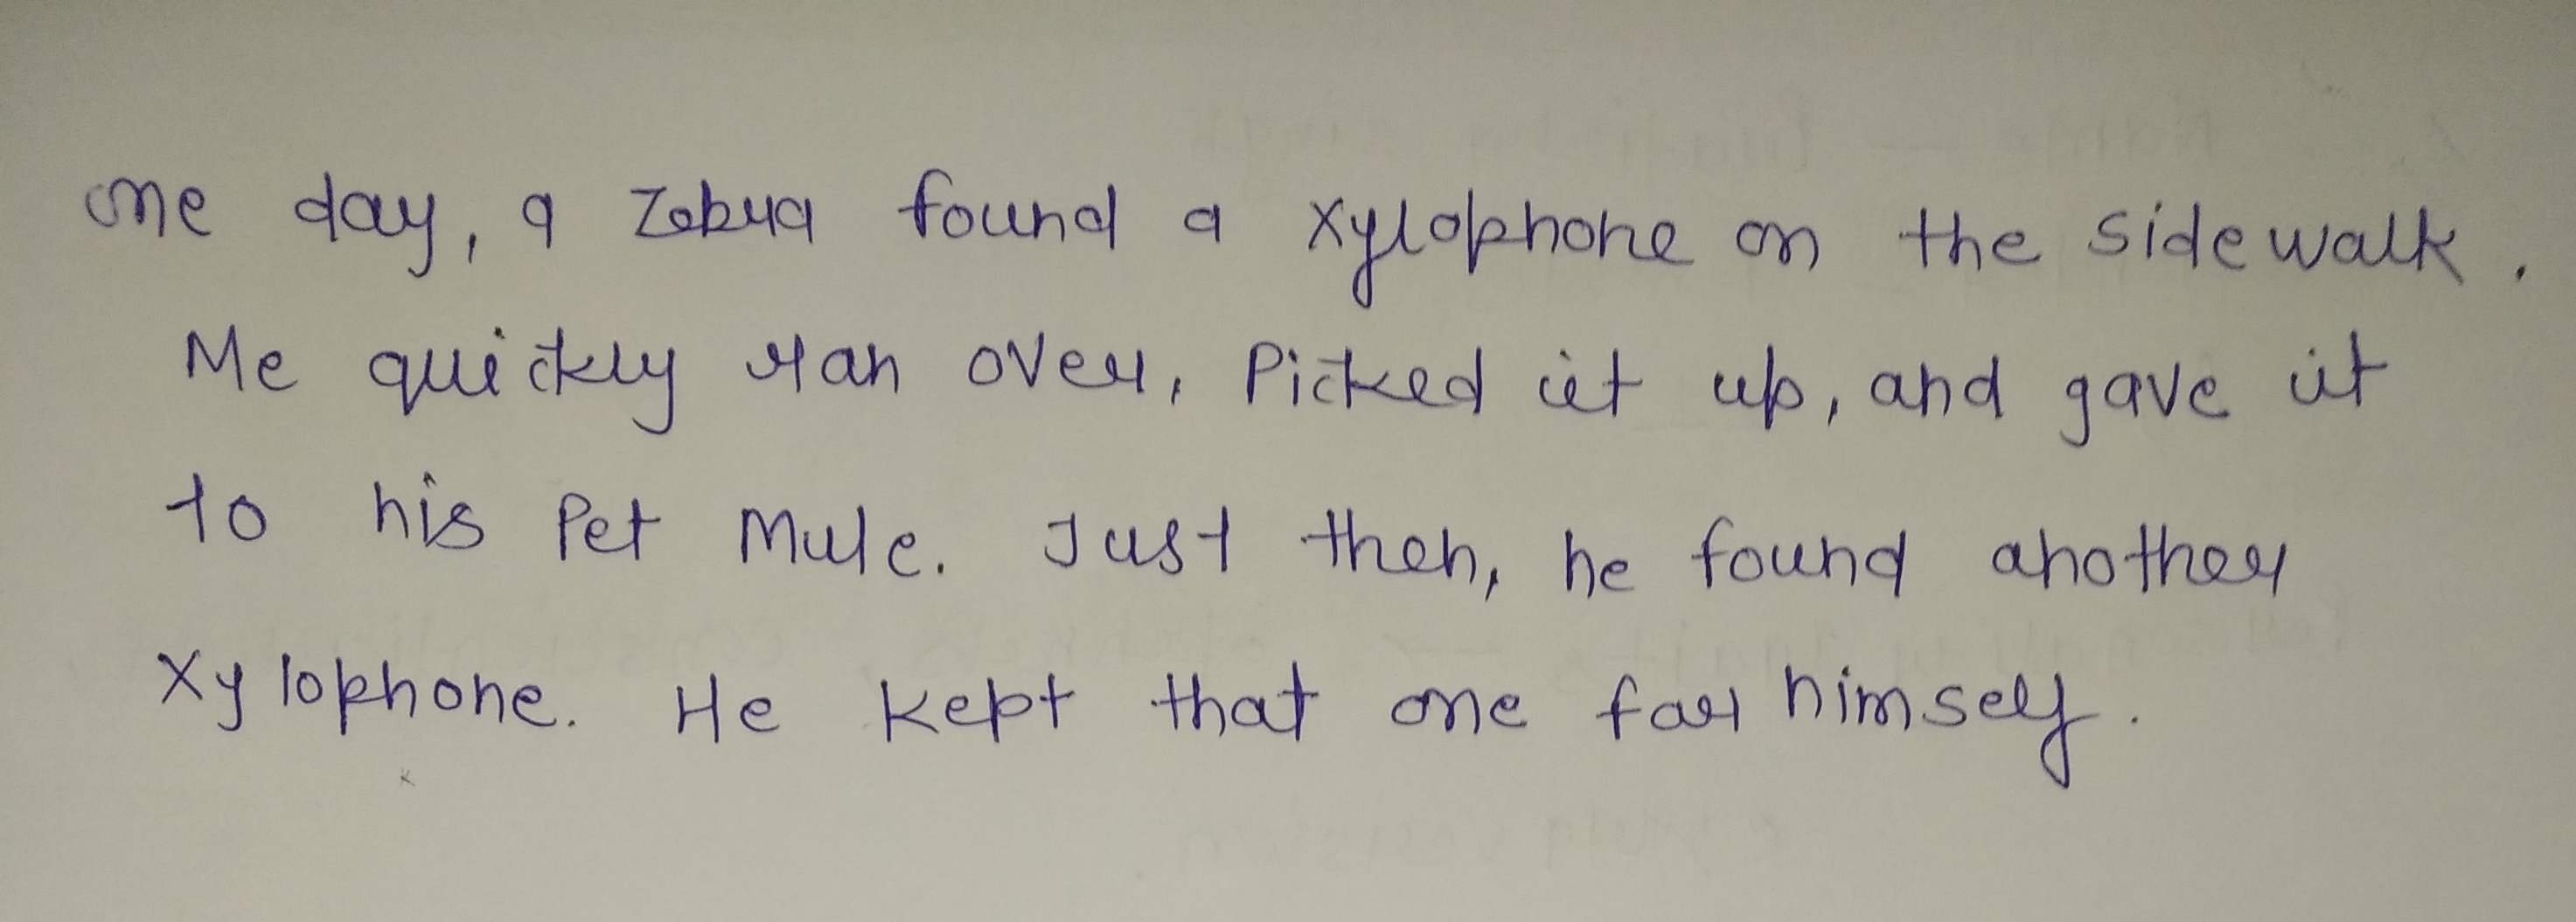 one day, a zebra found a xylophone on the sidewalk.
Me quickly ran over, Picked it up, and gave it
to his Pet Mule. Just then, he found another
Xylophone. He kept that one for himself.